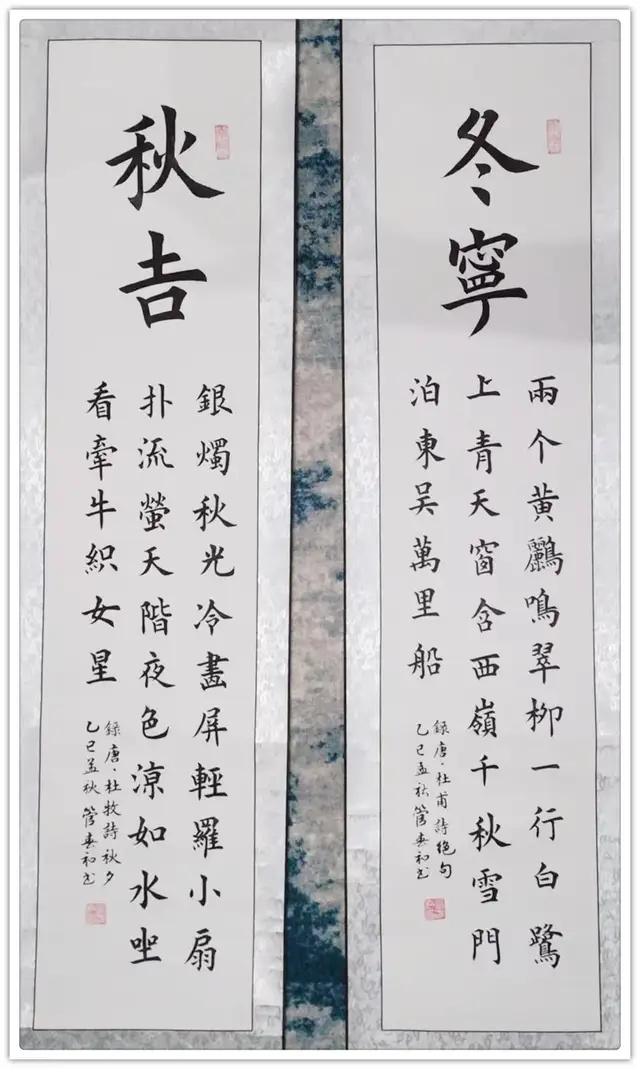 冬寧
兩个黄鸝鳴翠栁一行白鷺
上青天窗含西嶺千秋雪門
泊東吴萬里船
録唐·杜甫詩絶句
乙巳孟秋管初书
秋𠮷
銀燭秋光冷畫屏輕羅小扇
扑流螢天階夜色涼如水㘴
看牽牛織女星
録唐·杜牧詩秋夕
乙巳孟秋管初书